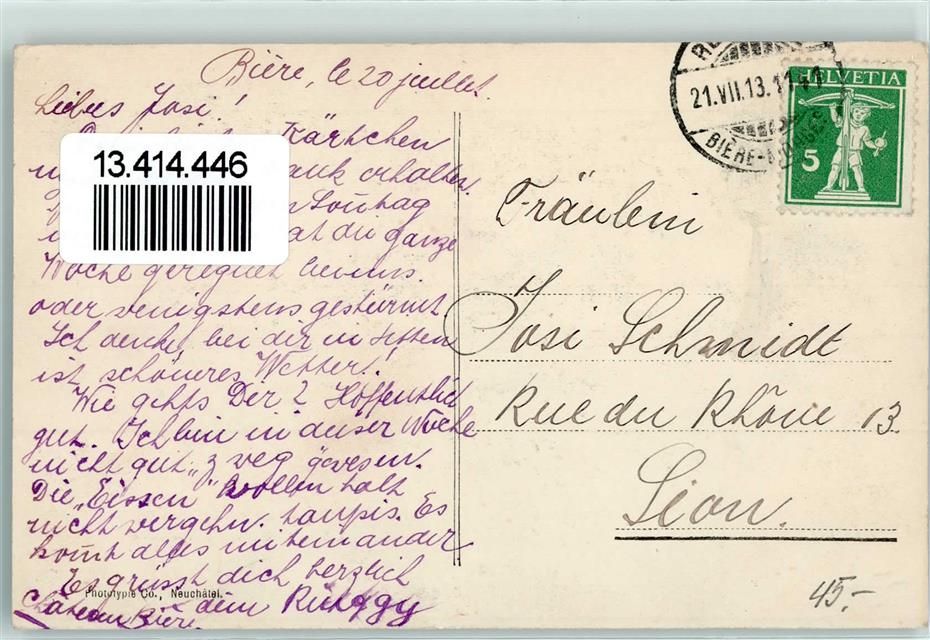 Bière, le 20 juillet.
Liebes Josi!
Kärtchen
erhalten.
Sonntag
hat die ganze
Woche geregnet bei uns.
oder wenigstens gestürmt
Ich denke, bei dir in Sitten
ist schöneres Wetter!
Wie gehts Dir? Hoffentlich
gut. Ich bin in dieser Woche
nicht gut "z weg gewesen.
Die "Eissen" wollen halt
nicht vergehn. Es
komt alles miteinander
Es grüsst dich herzlich
dein Rüeggy
Bière.
Phototypie Co., Neuchâtel.
13.414.446
21.VII.13.11
BIÈRE
HELVETIA
5
Fräulein
Josi Schmidt
Rue du Rhône 13.
Sion.
45.-